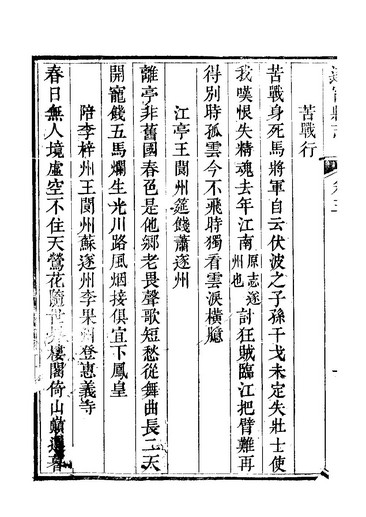 遂寧縣志 卷三
苦戰行
苦戰身死馬將軍自云伏波之子孫干戈未定失壯士使
我嘆恨失精魂去年江南原志遂州也討狂賊臨江把臂難再
得別時孤雲今不飛時獨看雲淚橫臆
江亭王閬州筵餞蕭遂州
離亭非舊國春色是他鄉老畏聲歌短愁從舞曲長二天
開寵錢五馬爛生光川路風烟接俱宜下鳳皇
陪李梓州王閬州蘇遂州李果州登惠義寺
春日無人境虛空不住天鶯花隨世界樓閣倚山巔遲暮